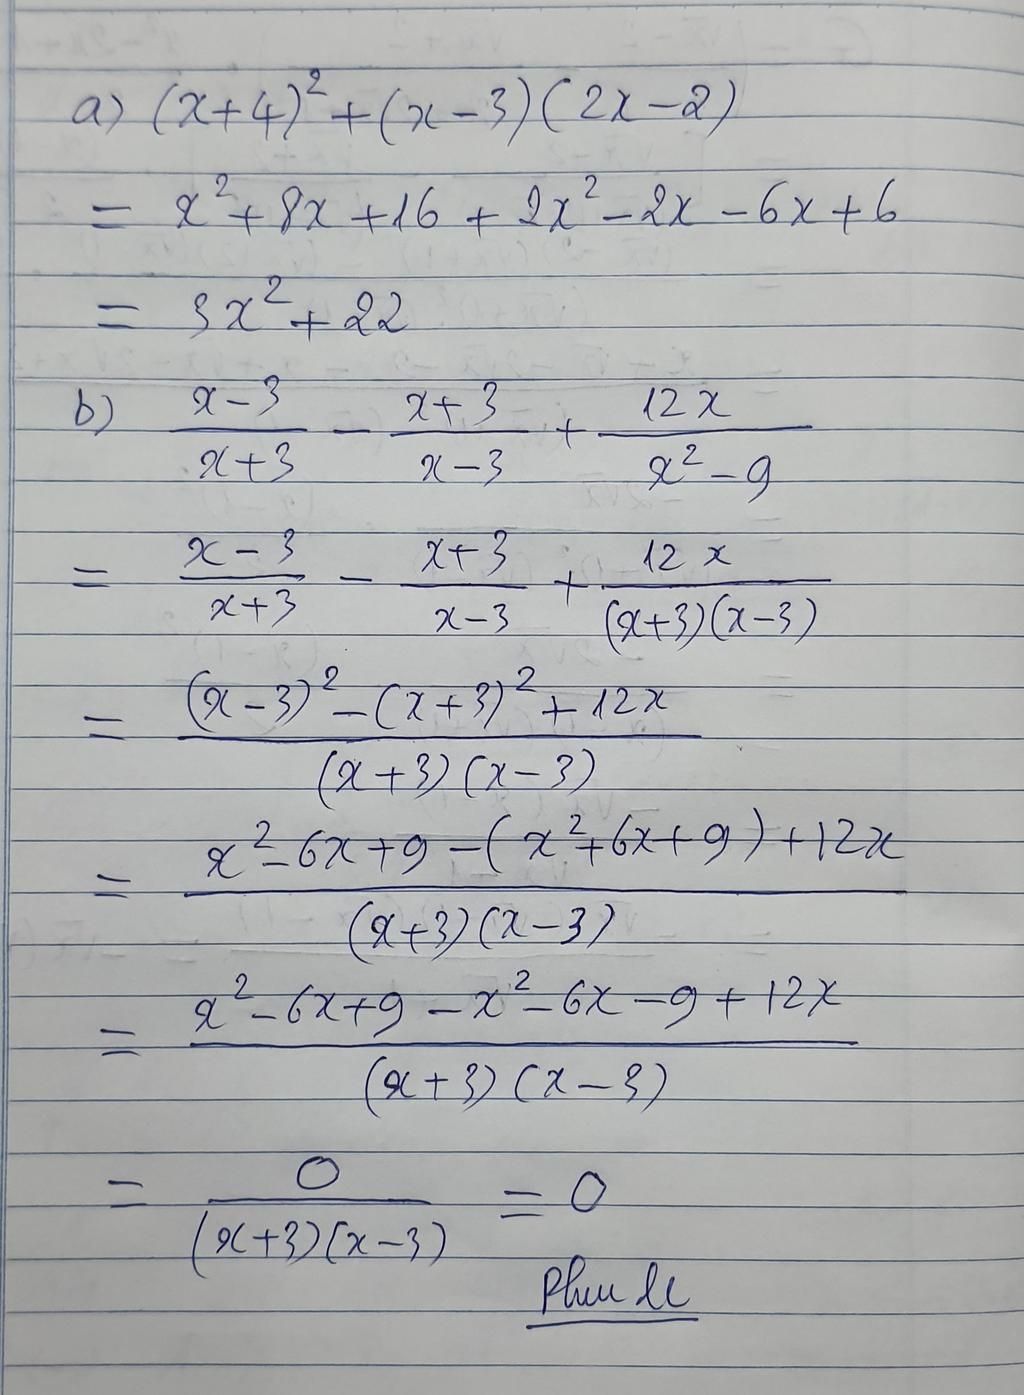 a) (x+4)² + (x-3)(2x-2)
= x² + 8x + 16 + 2x² - 2x - 6x + 6
= 3x² + 22
b) (x-3)/(x+3) - (x+3)/(x-3) + 12x/(x²-9)
= (x-3)/(x+3) - (x+3)/(x-3) + 12x/((x+3)(x-3))
= ((x-3)² - (x+3)² + 12x)/((x+3)(x-3))
= (x² - 6x + 9 - (x² + 6x + 9) + 12x)/((x+3)(x-3))
= (x² - 6x + 9 - x² - 6x - 9 + 12x)/((x+3)(x-3))
= 0/((x+3)(x-3)) = 0